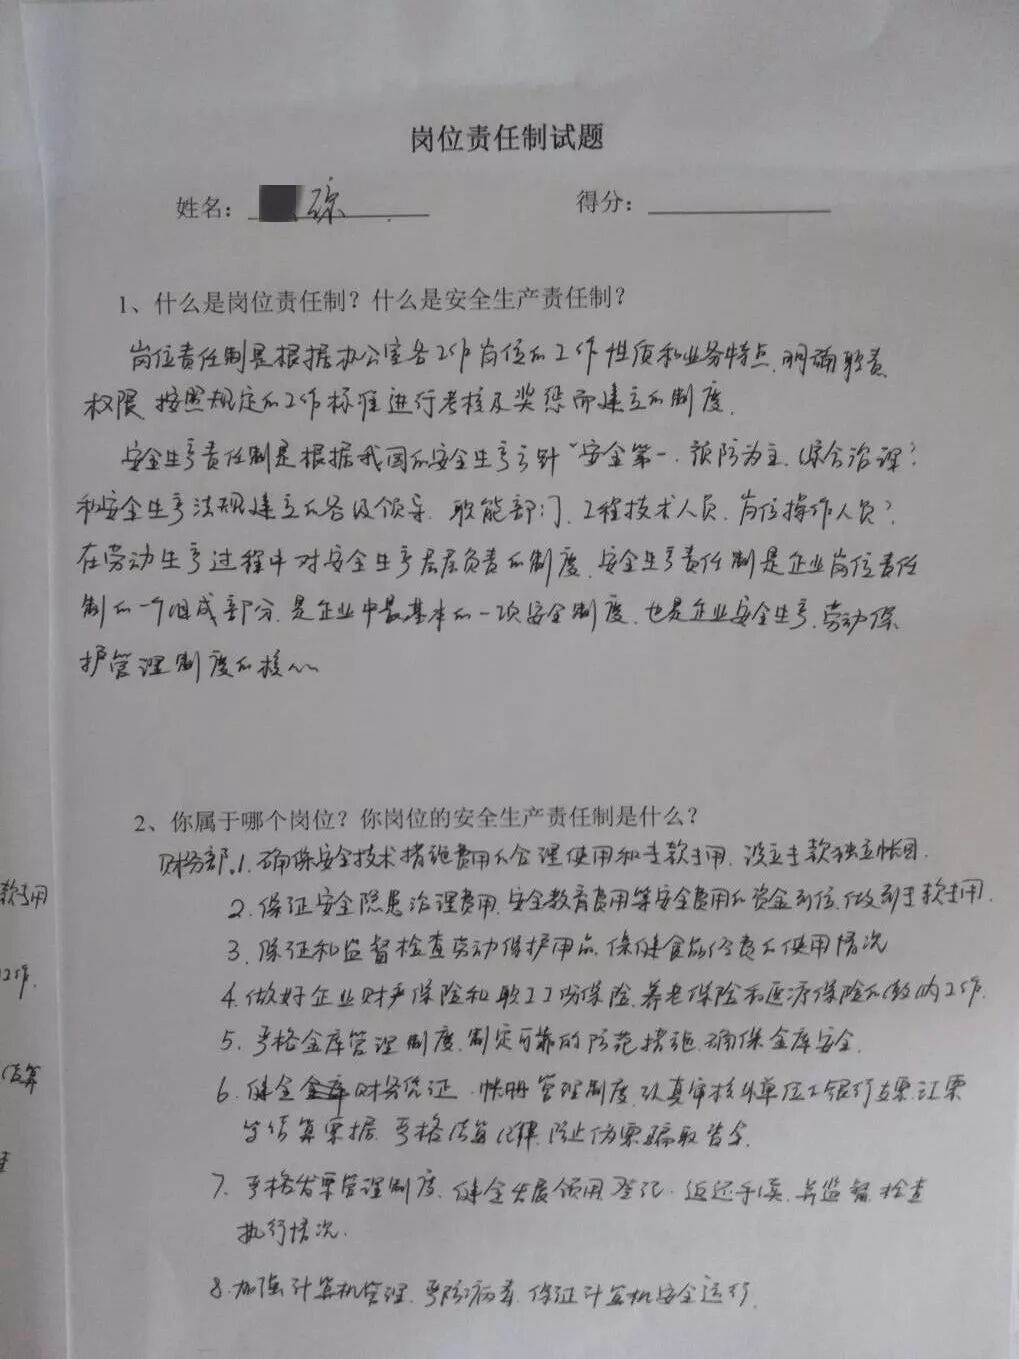 岗位责任制试题
姓名： 琼 得分：
1、什么是岗位责任制？什么是安全生产责任制？
岗位责任制是根据办公室各工作岗位的工作性质和业务特点，明确职责、
权限，按照规定的工作标准进行考核及奖惩而建立的制度。
安全生产责任制是根据我国的安全生产方针“安全第一、预防为主、综合治理”
和安全生产法规建立的各级领导、职能部门、工程技术人员、岗位操作人员
在劳动生产过程中对安全生产层层负责的制度。安全生产责任制是企业岗位责任
制的一个组成部分，是企业中最基本的一项安全制度，也是企业安全生产、劳动保
护管理制度的核心
2、你属于哪个岗位？你岗位的安全生产责任制是什么？
财务部.1.确保安全技术措施费用的合理使用和专款专用，设立专款独立帐目.
2.保证安全隐患治理费用、安全教育费用等安全费用的资金到位，做到专款专用.
3.保证和监督检查劳动保护用品、保健食品经费的使用情况
4.做好企业财产保险和职工工伤保险、养老保险和医疗保险的缴纳工作.
5.严格金库管理制度，制定可靠的防范措施，确保金库安全.
6.健全财务凭证、帐册管理制度，认真审核外单位银行支票、汇票
等结算票据，严格结算纪律，防止伪票骗取资金.
7.严格发票管理制度，健全发票领用登记、返还手续，并监督、检查
执行情况.
8.加强计算机管理，严防病毒，保证计算机安全运行.
款专用
工作.
结算